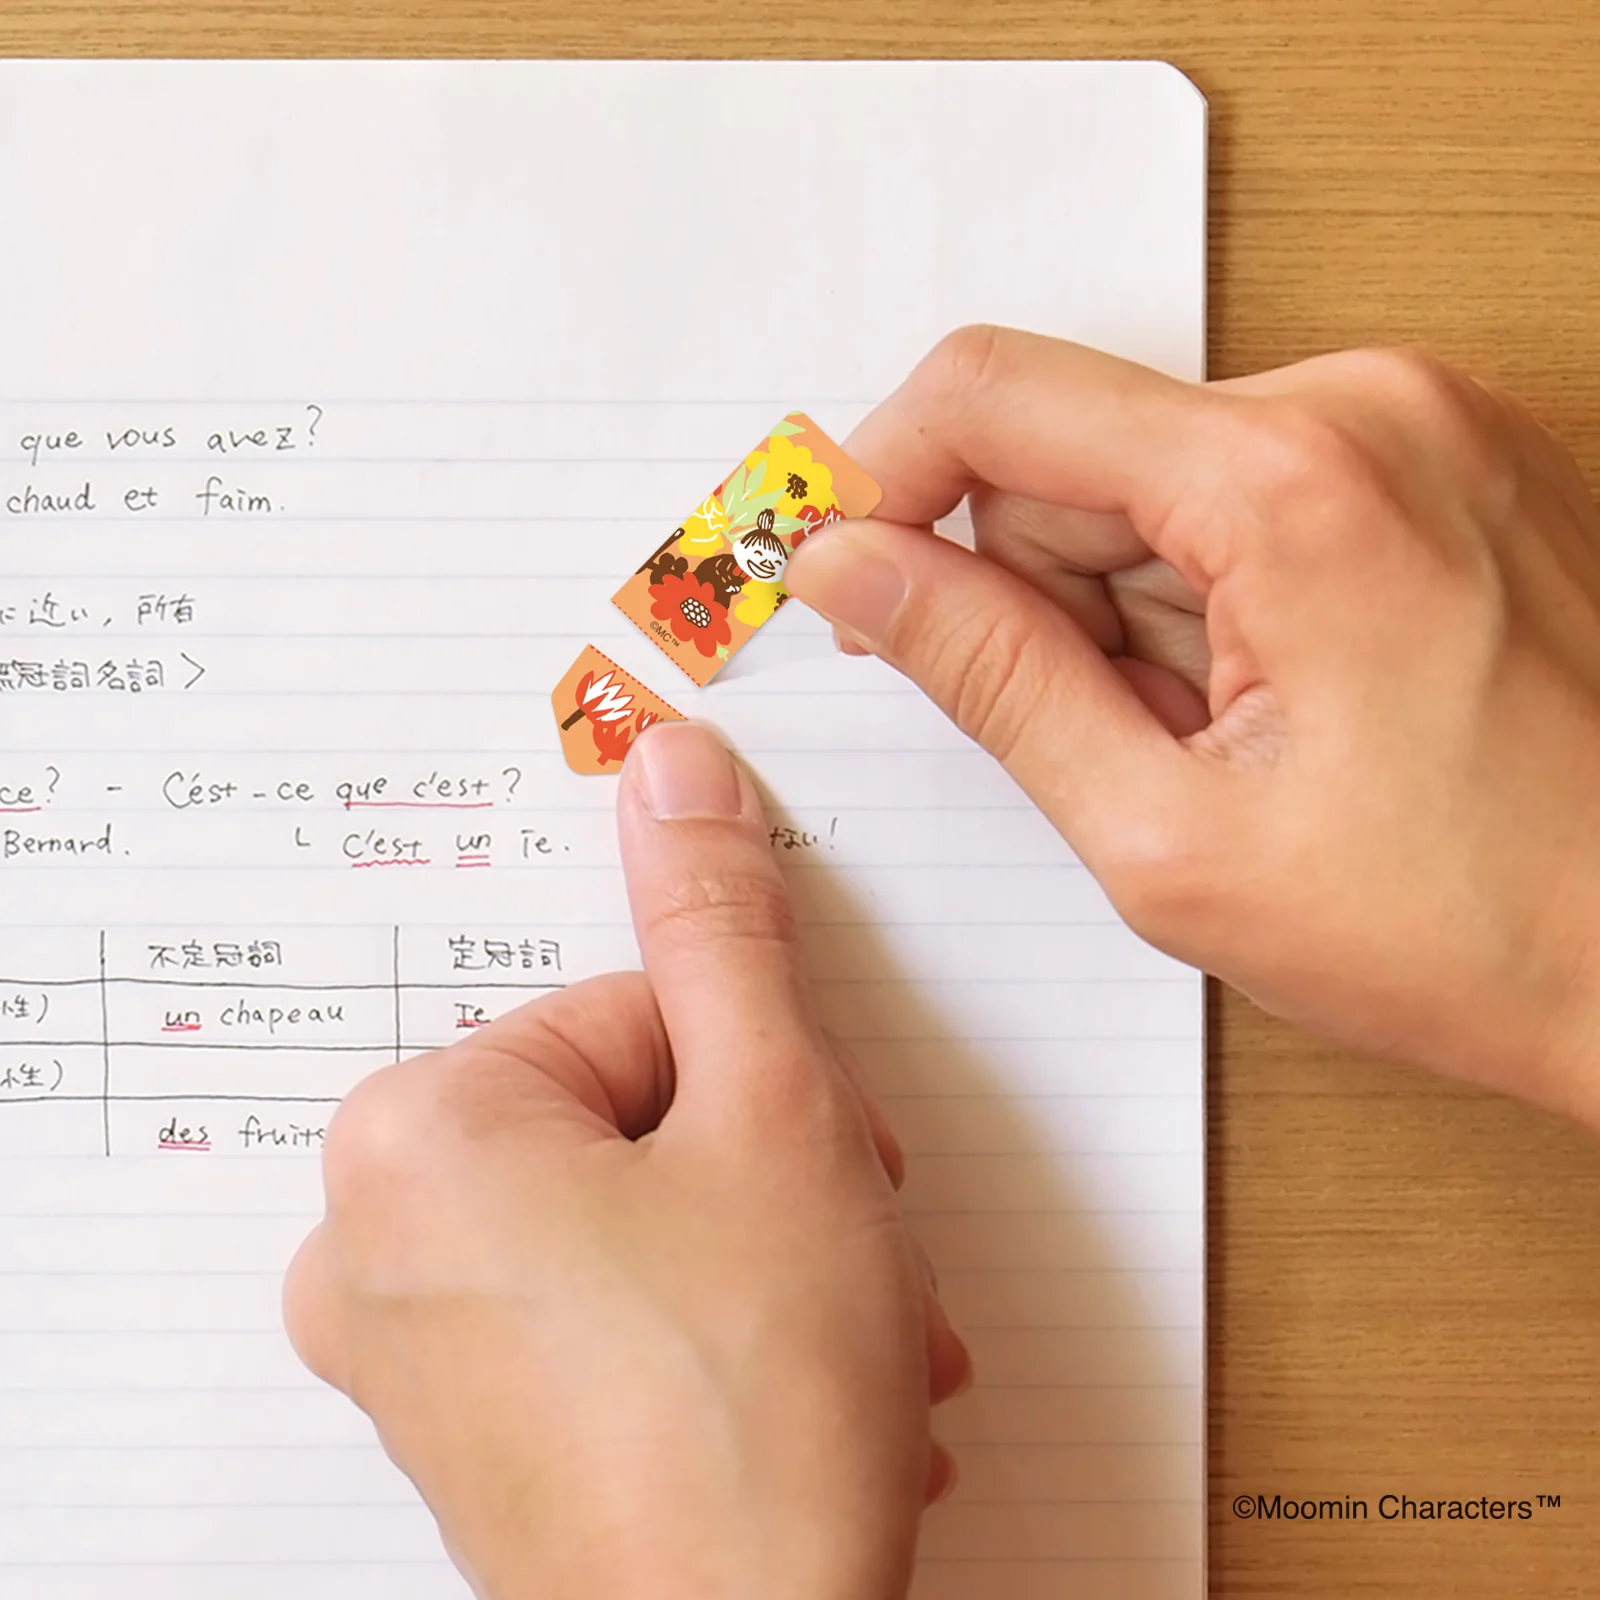 que vous avez?
chaud et faim.
に近い, 所有
冠詞名詞 >
ce? - C'ést-ce que c'est?
Bernard. └ C'est un Ie. ない!
不定冠詞 定冠詞
性) un chapeau Ie
性)
des fruits
©MC™
©Moomin Characters™